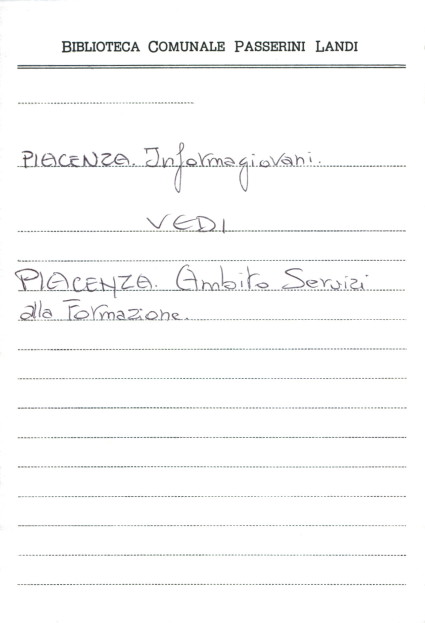 BIBLIOTECA COMUNALE PASSERINI LANDI
PIACENZA. Informagiovani.
VEDI
PIACENZA. Ambito Servizi
alla Formazione.